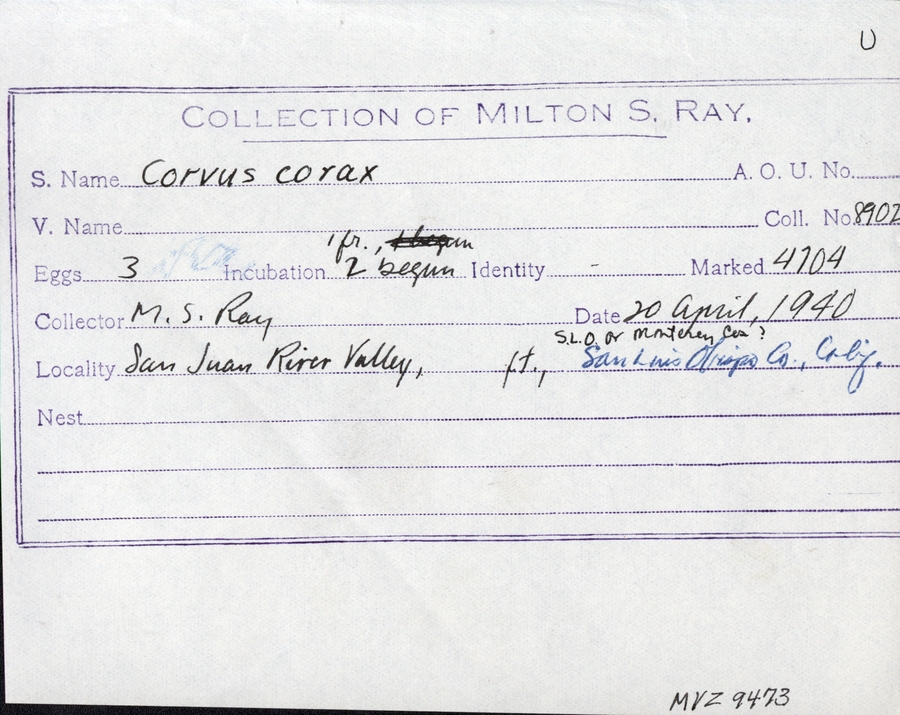 U
COLLECTION OF MILTON S. RAY.
S. Name Corvus corax A. O. U. No.
V. Name Coll. No. 8902
1 fr.,
Eggs 3 Incubation 2 begun Identity - Marked 4704
Collector M. S. Ray Date 20 April, 1940
S.L.O. or Monterey Cos ?
Locality San Juan River Valley, ft., San Luis Obispo Co., Calif.
Nest
MVZ 9473